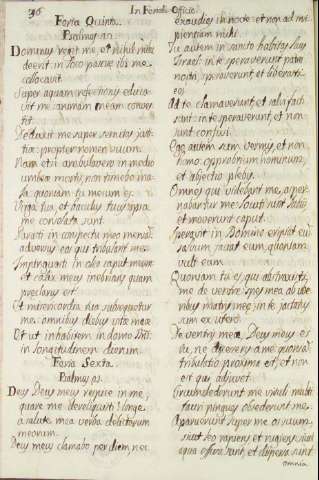 96
In Feriali Officio
Feria Quinta.
Psalmus 22.
Dominus reget me, et nihil mihi
deerit: in loco pascue ibi me
collocavit.
Super aquam refectionis educa
vit me: animam meam conver
tit.
Deduxit me super semitas justi
tia: propter nomen suum.
Nam etsi ambulavero in medio
umbra mortis, non timebo ma
la: quoniam tu mecum es.
Virga tua, et baculus tuus: ipsa
me consolata sunt.
Parasti in conspectu meo mensam
adversus eos qui tribulant me.
Impinguasti in oleo caput meum
et calix meus inebrians quam
preclarus est.
Et misericordia tua subsequetur
me: omnibus diebus vita mea
Et ut inhabitem in domo Domini
in longitudinem dierum.
Feria Sexta.
Psalmus 21.
Deus Deus meus respice in me,
quare me dereliquisti: longe
a salute mea verba delictorum
meorum.
Deus meus clamabo per diem, nec
exaudies: et nocte, et non ad insi
pientiam mihi.
Tu autem in sancto habitas: laus
Israel. in te speraverunt patres
nostri: speraverunt, et liberasti
eos.
Ad te clamaverunt, et salvi facti
sunt: in te speraverunt, et non
sunt confusi.
Ego autem sum vermis, et non
homo: opprobrium hominum,
et abjectio plebis.
Omnes qui videbant me, asper
nabantur me: locuti sunt labiis
et moverunt caput.
Speravit in Domino eripiat eum
salvum faciat eum, quoniam
vult eum.
Quoniam tu es, qui abstraxisti
me de ventre: spes mea ab ube
ribus matris mea, in te jactatus
sum ex utero.
De ventre mea, Deus meus es
tu, ne discesseris a me: quoniam
tribulatio proxima est, et non
est qui adjuvet.
Circumdederunt me vituli multi
tauri pingues obsederunt me.
Aperuerunt super me os suum,
sicut leo rapiens et rugiens.
Sicut aqua effusus sum, et dispersa sunt
omnia